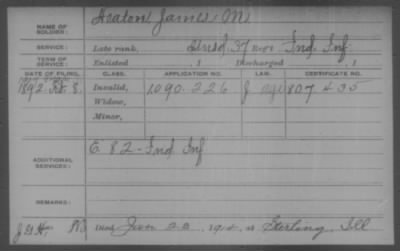 NAME OF SOLDIER: Heaton James M
SERVICE: Late rank, 37 Reg't Ind. Inf.
TERM OF SERVICE: Enlisted , 1 Discharged , 1
DATE OF FILING. CLASS. APPLICATION NO. LAW. CERTIFICATE NO.
1892 8. Invalid, 1.090.226 J 807 435
Widow,
Minor,
ADDITIONAL SERVICES: E. 82 - Ind Inf
REMARKS:
Died Jan 20 191 , at Sterling, Ill